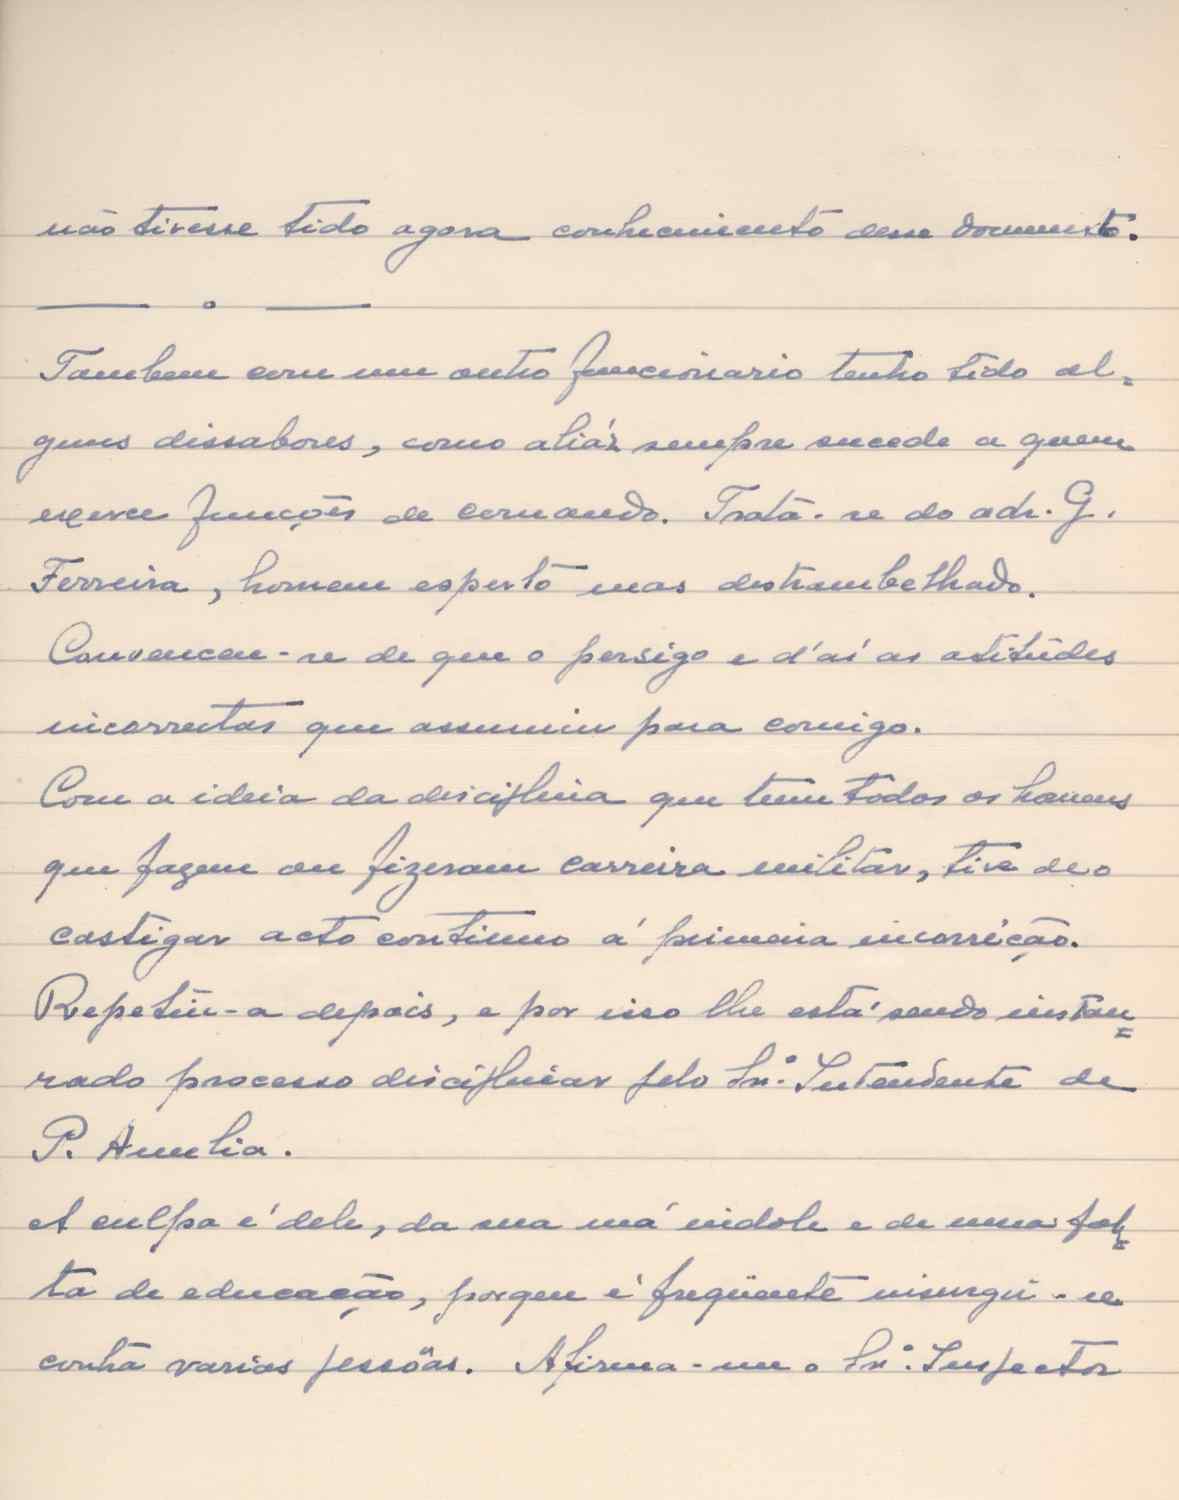 não tivesse tido agora conhecimento desse documento.
Tambem com um outro funcionario tenho tido al=
guns dissabores, como aliáz sempre sucede a quem
exerce funções de comando. Trata-se do adr. G.
Ferreira, homem esperto mas destrambelhado.
Convenceu-se de que o persigo e d'aí as atitudes
incorrectas que assumiu para comigo.
Com a ideia da disciplina que teem todos os homens
que fazem ou fizeram carreira militar, tive de o
castigar acto continuo á primeira incorreição.
Repetiu-a depois, e por isso lhe está sendo instau=
rado processo disciplinar pelo Snr. Intendente de
P. Amelia.
A culpa é dele, da sua má indole e de uma fal=
ta de educação, porque é freqüente insurgir-se
contra varias pessöas. Afirma-me o Snr. Inspector